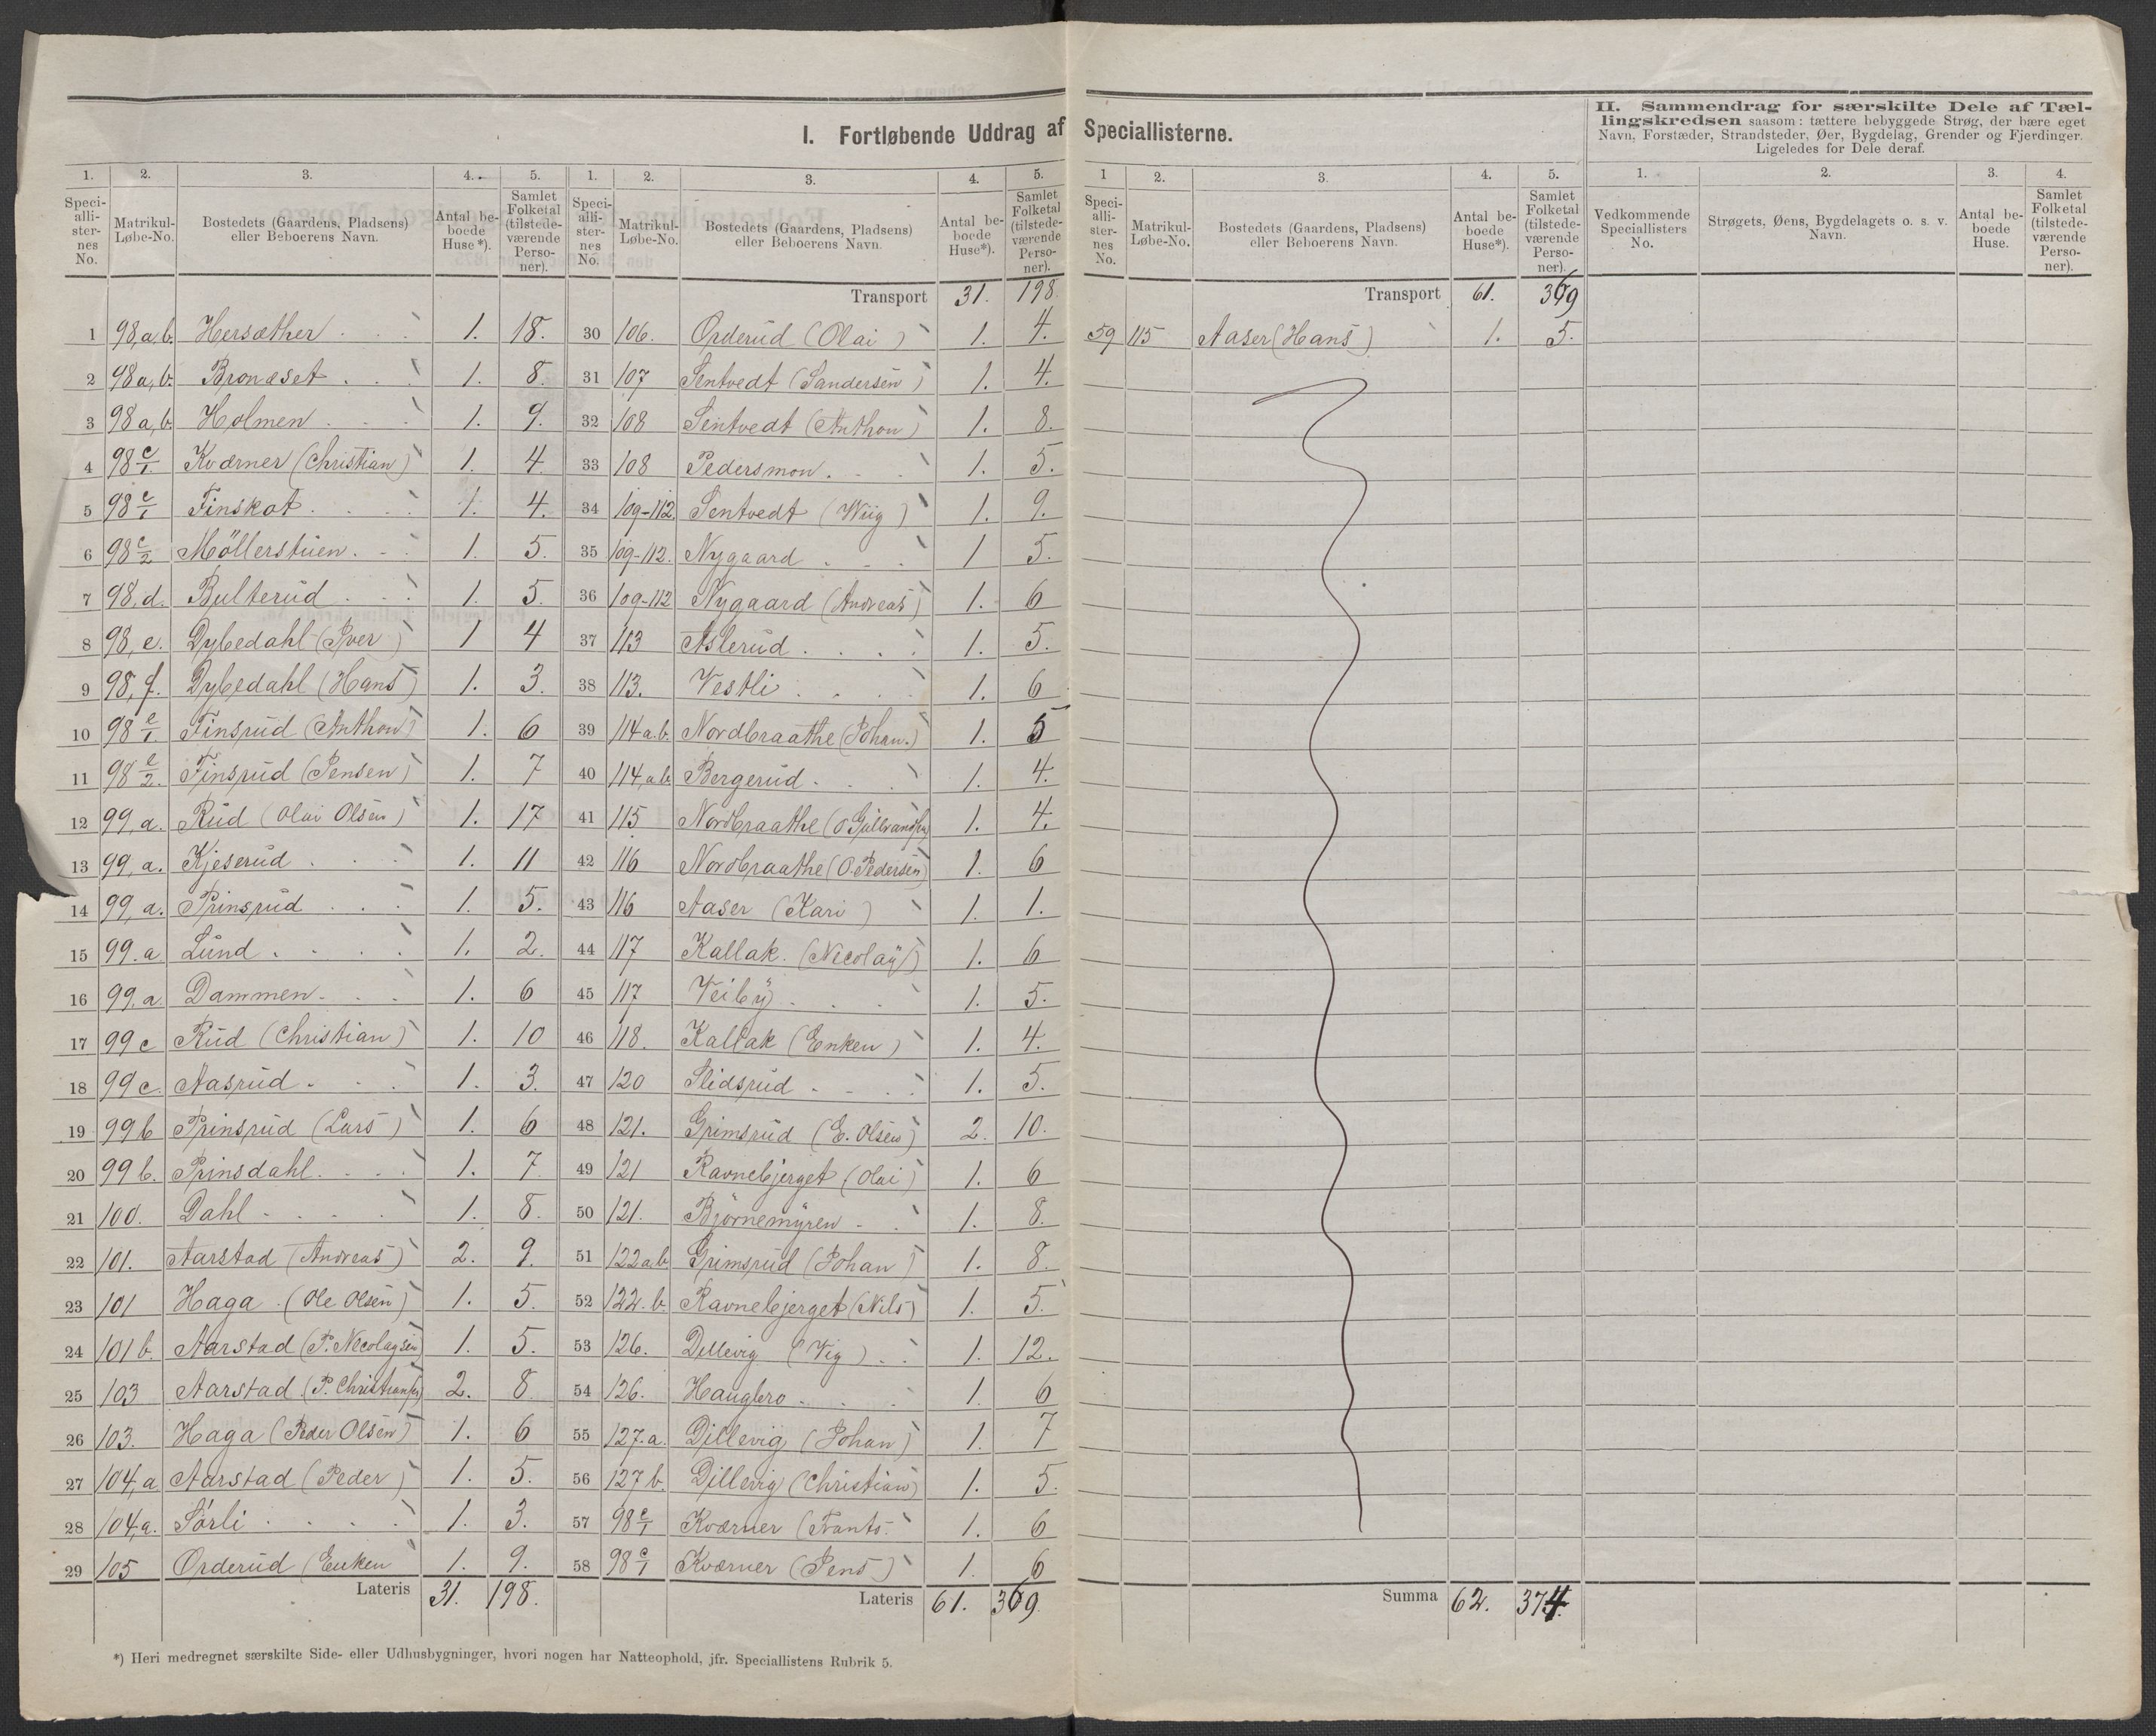 I. Fortløbende Uddrag af Speciallisterne.
II. Sammendrag for særskilte Dele af Tæl-
lingskredsen saasom: tættere bebyggede Strøg, der bære eget
Navn, Forstæder, Strandsteder, Øer, Bygdelag, Grender og Fjerdinger.
Ligeledes for Dele deraf.
1. 2. 3. 4. 5.
Speci-alli-ster-nes No. Matrikul-Løbe-No. Bostedets (Gaardens, Pladsens) eller Beboerens Navn. Antal be-boede Huse*). Samlet Folketal (tilstede-værende Perso-ner).
1 98,a,b. Hersæther 1. 18.
2 98a,b. Bronæset 1. 8.
3 98a,b. Holmen 1. 9.
4 98 c/1. Kværner (Christian) 1. 4.
5 98 c/1 Finskot 1. 4.
6 98 c/2 Möllerstuen 1. 5.
7 98,d. Bulterud 1. 5.
8 98,e. Dybedahl (Iver) 1 4
9 98,f. Dybedahl (Hans) 1. 3.
10 98 e/1. Finsrud (Anthon) 1. 6
11 98 e/2. Finsrud (Jensen) 1. 7
12 99,a. Rud (Olai Olsen) 1. 17
13 99,a. Kjeserud 1. 11
14 99,a. Prinsrud 1. 5.
15 99.a Lund 1. 2.
16 99,a Dammen 1. 6
17 99c Rud (Christian) 1. 10
18 99c. Aasrud 1. 3.
19 99b Prinsrud (Lars) 1. 6
20 99b. Prinsdahl 1. 7
21 100. Dahl 1. 8.
22 101. Aarstad (Andreas) 2. 9.
23 101 Haga (Ole Olsen) 1. 5.
24 101b. Aarstad (P. Nicolaysen) 1. 5.
25 103 Aarstad (P. Christiansen) 2. 8
26 103. Haga (Peder Olsen) 1. 6
27 104,a Aarstad (Peder) 1. 5.
28 104,a. Sörli 1. 3.
29 105 Orderud (Enken 1. 9.
Lateris 31. 198.
1. 2. 3. 4. 5.
Speci-alli-ster-nes No. Matrikul-Løbe-No. Bostedets (Gaardens, Pladsens) eller Beboerens Navn. Antal be-boede Huse*). Samlet Folketal (tilstede-værende Perso-ner).
Transport 31. 198.
30 106. Orderud (Olai) 1. 4.
31 107 Sentvedt (Sandersen) 1. 4.
32 108 Sentvedt (Anthon) 1. 8.
33 108 Pedersmon 1. 5.
34 109-112. Sentvedt (Wiig) 1. 9.
35 109-112. Nygaard 1 5.
36 109-112 Nygaard (Andreas) 1. 6
37 113 Aslerud 1. 5.
38 113. Vestli 1. 6
39 114a.b. Nordbraathe (Johan.) 1. 5
40 114,a.b. Bergerud 1. 4.
41 115 Nordbraathe (O Gulbrandsen) 1. 4.
42 116 Nordbraathe (O. Pedersen) 1. 6
43 116 Aaser (Kari) 1. 1.
44 117 Kallak (Nicolay) 1. 6
45 117 Veiby 1. 5.
46 118. Kallak (Enken) 1. 4.
47 120 Slidsrud 1. 5.
48 121. Grimsrud (E. Olsen) 2. 10.
49 121 Ravnebjerget (Olai) 1. 6
50 121. Björnemyren 1. 8.
51 122a.b Grimsrud (Johan) 1. 8.
52 122.b. Ravnebjerget (Nils) 1. 5.
53 126. Dillevig (Vig) 1. 12.
54 126. Haugbro 1. 6
55 127.a. Dillevig (Johan) 1. 7
56 127b. Dillevig (Christian) 1. 5.
57 98 c/1 Kværner (Frants. 1. 6
58 98 c/1 Kværner (Jens) 1. 6
Lateris 61. 369.
1 2. 3. 4. 5.
Speci-alli-ster-nes No. Matrikul-Løbe-No. Bostedets (Gaardens, Pladsens) eller Beboerens Navn. Antal be-boede Huse*). Samlet Folketal (tilstede-værende Perso-ner).
Transport 61. 369
59 115 Aaser (Hans) 1. 5.
Summa 62. 374.
1. 2. 3. 4.
Vedkommende Speciallisters No. Strøgets, Øens, Bygdelagets o. s. v. Navn. Antal be-boede Huse. Samlet Folketal (tilstede-værende Perso-ner).
*) Heri medregnet særskilte Side- eller Udhusbygninger, hvori nogen har Natteophold, jfr. Speciallistens Rubrik 5.